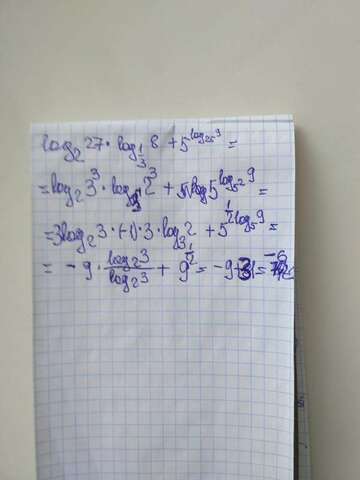 log₂27·log_{1/3}8 + 5^{log₂₅9} =
= log₂3³·log_{3}2³ + 5^{log_{5²}9} =
= 3log₂3·(-1)·3·log₃2 + 5^{½log₅9} =
= -9·\frac{log₂3}{log₂3} + 9^{½} = -9+3 = -6